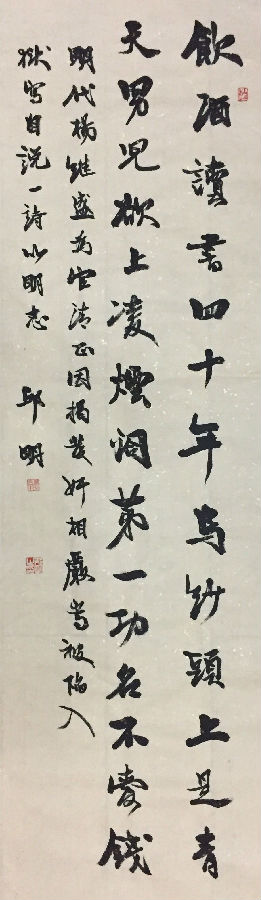 飲酒讀書四十年烏紗頭上是青
天男兒欲上凌煙閣第一功名不愛錢
明代楊繼盛為官清正因揭發奸相嚴嵩被陷入
獄寫自說一詩以明志 邱明